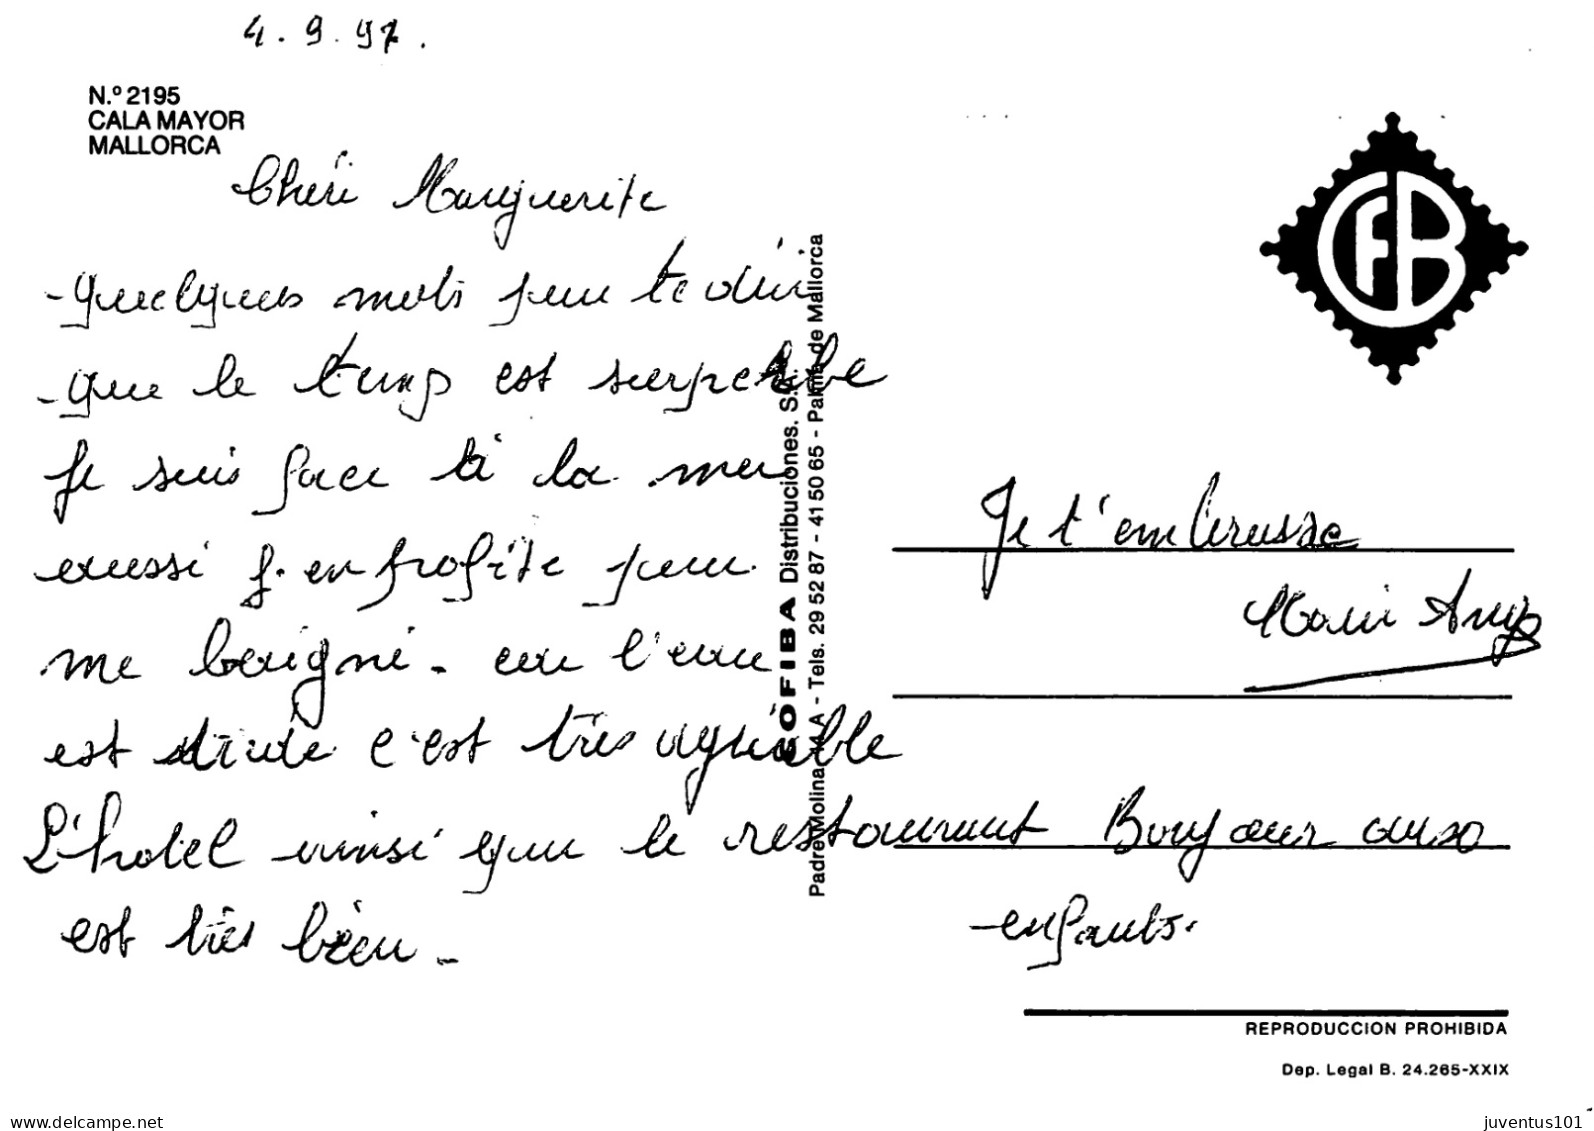 4.9.97.
N.º 2195
CALA MAYOR
MALLORCA
Chéri Marguerite
-quelques mots pour te dire
-que le temp est surperbe
Je suis face à la mer
aussi j'en profite pour
me baigné. car l'eau
est tiède c'est très agréable
L'hotel ainsi que le restaurant
est très bien.
COFIBA Distribuciones. S.A.
Padre Molina, - Tels. 29 52 87 - 41 50 65 - Palma de Mallorca
CFB
Je t'embrasse
Marie Ange
Bonjour aux
enfants.
REPRODUCCION PROHIBIDA
Dep. Legal B. 24.265-XXIX
delcampe.net
juventus101